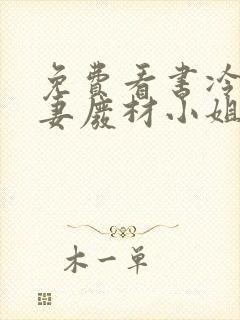 免费看书冷
妻废材小姐
木一单